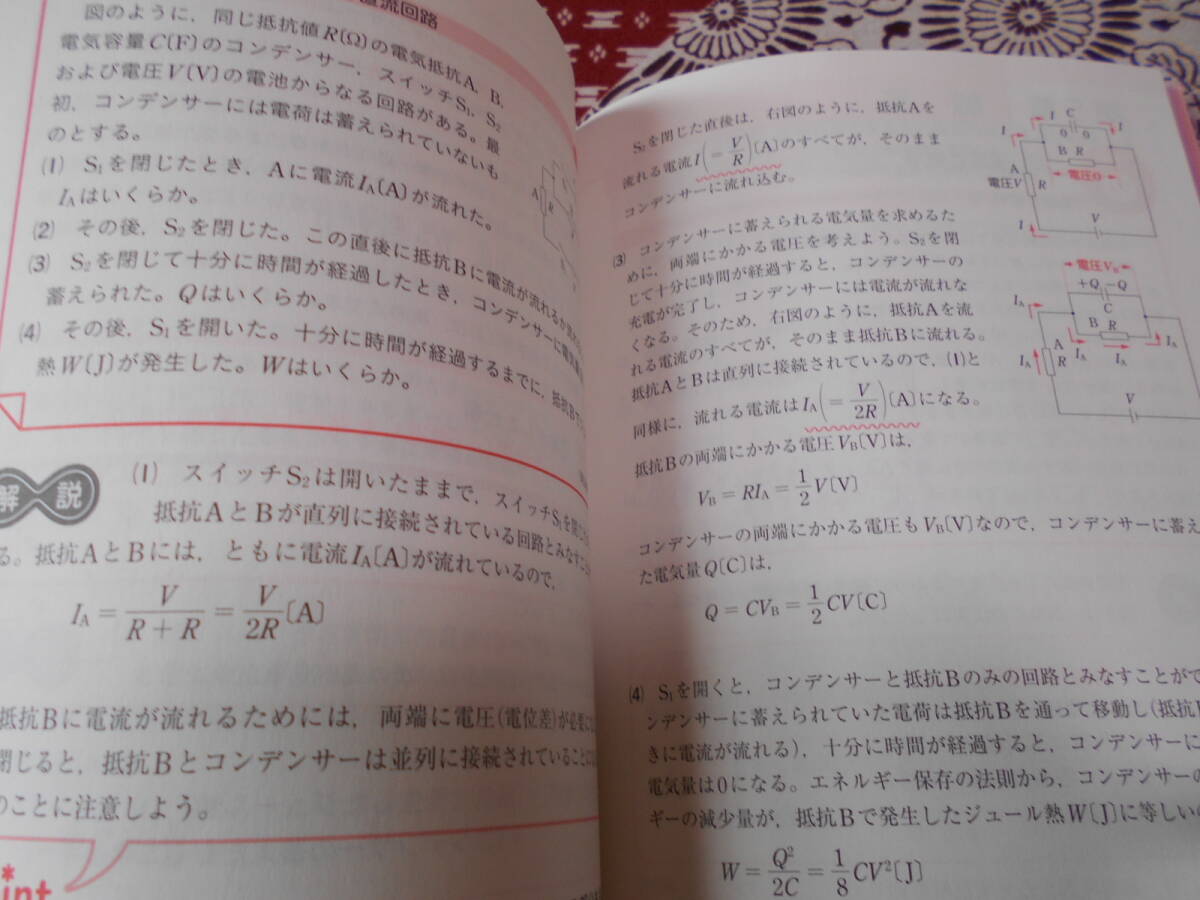 直流回路
図のように，同じ抵抗値R〔Ω〕の電気抵抗A，B，
電気容量C〔F〕のコンデンサー，スイッチS₁，S₂
および電圧V〔V〕の電池からなる回路がある。最
初，コンデンサーには電荷は蓄えられていないも
のとする。
(1) S₁を閉じたとき，Aに電流I_A〔A〕が流れた。
I_Aはいくらか。
(2) その後，S₂を閉じた。この直後に抵抗Bに電流が流れるか
(3) S₂を閉じて十分に時間が経過したとき，コンデンサーに
蓄えられた。Qはいくらか。
(4) その後，S₁を開いた。十分に時間が経過するまでに，抵抗Bで
熱W〔J〕が発生した。Wはいくらか。
A
R
解説
(1) スイッチS₂は開いたままで，スイッチS₁を閉じ
抵抗AとBが直列に接続されている回路とみなす
る。抵抗AとBには，ともに電流I_A〔A〕が流れているので，
I_A = V/(R + R) = V/2R〔A〕
抵抗Bに電流が流れるためには，両端に電圧(電位差)が必要
閉じると，抵抗Bとコンデンサーは並列に接続されていること
のことに注意しよう。
int
S₂を閉じた直後は，右図のように，抵抗Aを
流れる電流I(= V/R)〔A〕のすべてが，そのまま
コンデンサーに流れ込む。
(3) コンデンサーに蓄えられる電気量を求めるた
めに，両端にかかる電圧を考えよう。S₂を閉
じて十分に時間が経過すると，コンデンサーの
充電が完了し，コンデンサーには電流が流れな
くなる。そのため，右図のように，抵抗Aを流
れる電流のすべてが，そのまま抵抗Bに流れる。
抵抗AとBは直列に接続されているので，(1)と
同様に，流れる電流はI_A(= V/2R)〔A〕になる。
抵抗Bの両端にかかる電圧V_B〔V〕は，
V_B = RI_A = 1/2 V〔V〕
コンデンサーの両端にかかる電圧もV_B〔V〕なので，コンデンサーに蓄え
た電気量Q〔C〕は，
Q = CV_B = 1/2 CV〔C〕
(4) S₁を開くと，コンデンサーと抵抗Bのみの回路とみなすことがで
ンデンサーに蓄えられていた電荷は抵抗Bを通って移動し(抵抗B
きに電流が流れる)，十分に時間が経過すると，コンデンサーに
電気量は0になる。エネルギー保存の法則から，コンデンサーの
ギーの減少量が，抵抗Bで発生したジュール熱W〔J〕に等しい
W = Q²/2C = 1/8 CV²〔J〕
I C I
I 0 0
B R
A
電圧V R
電圧0
I V
電圧V_B
+Q −Q
I_A C
B R I_A
A
I_A R I_A I_A
V